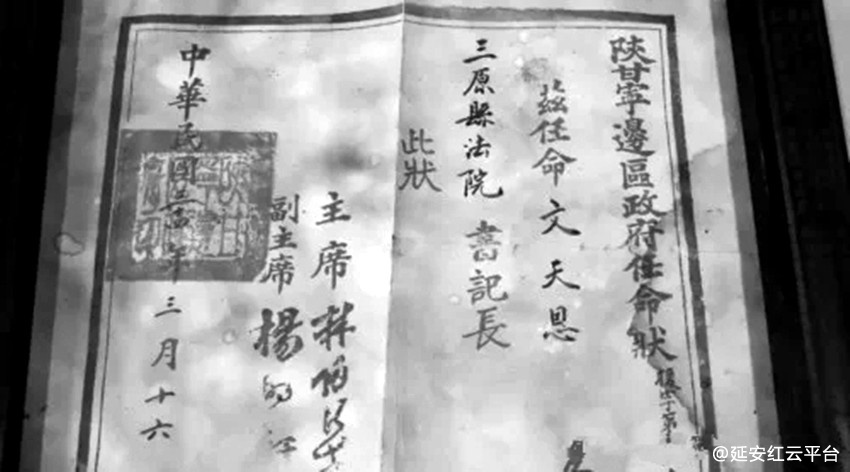 陝甘寧邊區政府任命狀
茲任命文天恩
三原縣法院書記長
此狀
主席林伯渠
副主席楊明
中華民國年三月十六
@延安红云平台